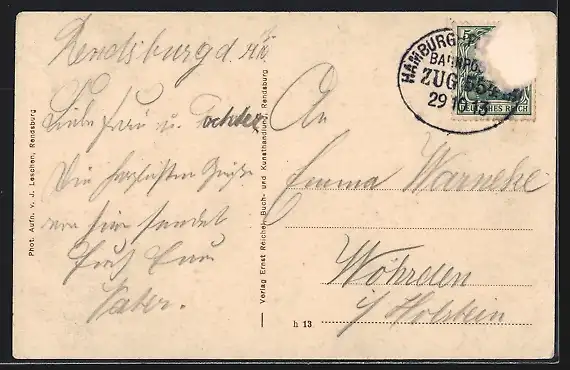 Rendsburg d.
Liebe Frau u. Tochter
Die herzlichsten Grüße
von hier sendet
Euch Euer
Vater.
Phot. Aufn. v. J. Leschen, Rendsburg
Verlag Ernst Reicher, Buch- und Kunsthandlung, Rendsburg
h 13
An
Emma Warneke
Wöhrden
i/ Holstein
HAMBURG
BAHNPOST
ZUG
29 10 13
5
DEUTSCHES REICH